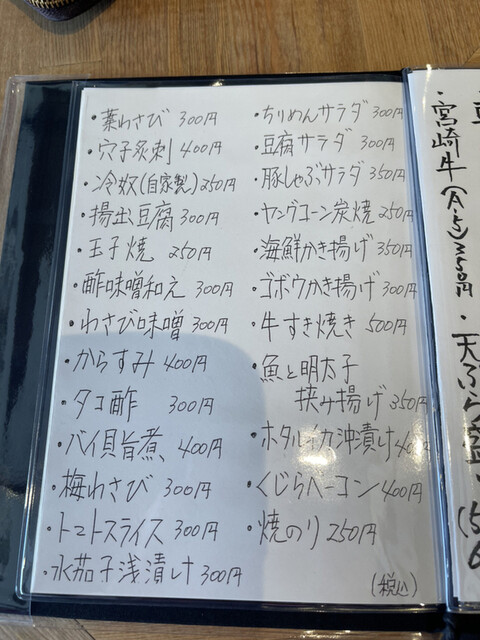 ・葉わさび 300円
・穴子炙刺 400円
・冷奴(自家製)250円
・揚出豆腐 300円
・玉子焼 250円
・酢味噌和え 300円
・わさび味噌 300円
・からすみ 400円
・タコ酢 300円
・バイ貝旨煮 400円
・梅わさび 300円
・トマトスライス 300円
・水茄子浅漬け 300円
・ちりめんサラダ 300円
・豆腐サラダ 300円
・豚しゃぶサラダ 350円
・ヤングコーン炭焼 250円
・海鮮かき揚げ 350円
・ゴボウかき揚げ 300円
・牛すき焼き 500円
・魚と明太子
挟み揚げ 350円
・ホタルイカ沖漬け 400
・くじらベーコン 400円
・焼のり 250円
(税込)
・宮崎牛(A-5)350円
・天ぷら盛